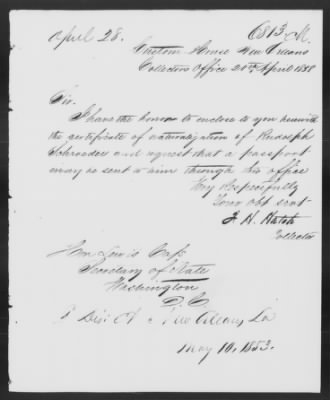 April 28.
6813 M.
Custom House New Orleans
Collectors Office 20th April 1858
Sir.
I have the honor to enclose to you herewith
the certificate of naturalization of Rudolph
Schroeder and request that a passport
may be sent to him through this office
Very Respectfully
Your obt servt
F. H. Hatch
Collector
Hon Lewis Cass
Secretary of State
Washington
D.C.
New Orleans, La
May 10, 1853.